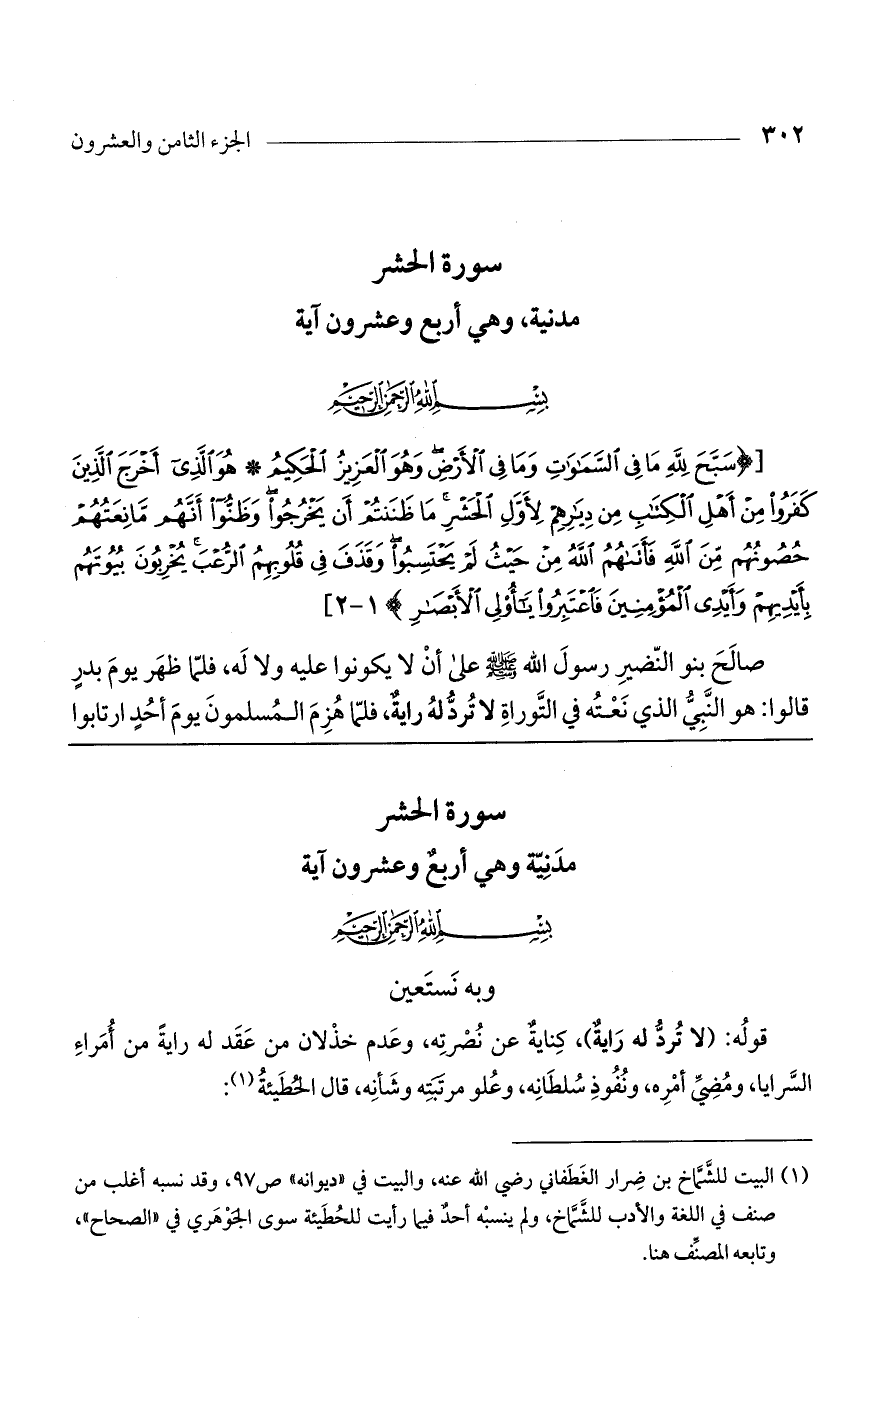 ٣٠٢ الجزء الثامن والعشرون
سورة الحشر
مدنية، وهي أربع وعشرون آية
بِسْمِ ٱللَّهِ ٱلرَّحْمَٰنِ ٱلرَّحِيمِ
[﴿سَبَّحَ لِلَّهِ مَا فِى ٱلسَّمَٰوَٰتِ وَمَا فِى ٱلْأَرْضِ ۖ وَهُوَ ٱلْعَزِيزُ ٱلْحَكِيمُ * هُوَ ٱلَّذِىٓ أَخْرَجَ ٱلَّذِينَ
كَفَرُوا۟ مِنْ أَهْلِ ٱلْكِتَٰبِ مِن دِيَٰرِهِمْ لِأَوَّلِ ٱلْحَشْرِ ۚ مَا ظَنَنتُمْ أَن يَخْرُجُوا۟ ۖ وَظَنُّوٓا۟ أَنَّهُم مَّانِعَتُهُمْ
حُصُونُهُم مِّنَ ٱللَّهِ فَأَتَىٰهُمُ ٱللَّهُ مِنْ حَيْثُ لَمْ يَحْتَسِبُوا۟ ۖ وَقَذَفَ فِى قُلُوبِهِمُ ٱلرُّعْبَ ۚ يُخْرِبُونَ بُيُوتَهُم
بِأَيْدِيهِمْ وَأَيْدِى ٱلْمُؤْمِنِينَ فَٱعْتَبِرُوا۟ يَٰٓأُو۟لِى ٱلْأَبْصَٰرِ﴾ ١-٢]
صالَحَ بنو النّضيرِ رسولَ الله ﷺ علىٰ أنْ لا يكونوا عليه ولا لَه، فلمّا ظهَر يومَ بدرٍ
قالوا: هو النَّبِيُّ الذي نَعْتُه في التَّوراةِ لا تُردُّ لهُ رايةٌ، فلمّا هُزِمَ المُسلمونَ يومَ أُحُدٍ ارتابوا
سورة الحشر
مدَنِيّة وهي أربعٌ وعشرون آية
بِسْمِ ٱللَّهِ ٱلرَّحْمَٰنِ ٱلرَّحِيمِ
وبه نَستَعين
قولُه: (لا تُردُّ له رَايةٌ)، كِنايةٌ عن نُصْرتِه، وعَدم خذْلان من عَقَد له رايةً من أُمَراءِ
السَّرايا، ومُضِيِّ أمْرِه، ونُفُوذِ سُلطَانِه، وعُلو مرتبَتِه وشَأنِه، قال الحُطَيئةُ(١):
(١) البيت للشَّمَّاخ بن ضِرار الغَطَفاني رضي الله عنه، والبيت في «ديوانه» ص٩٧، وقد نسبه أغلب من
صنف في اللغة والأدب للشَّمَّاخ، ولم ينسبْه أحدٌ فيما رأيت للحُطَيئة سوى الجَوْهَري في «الصحاح»،
وتابعه المصنِّف هنا.